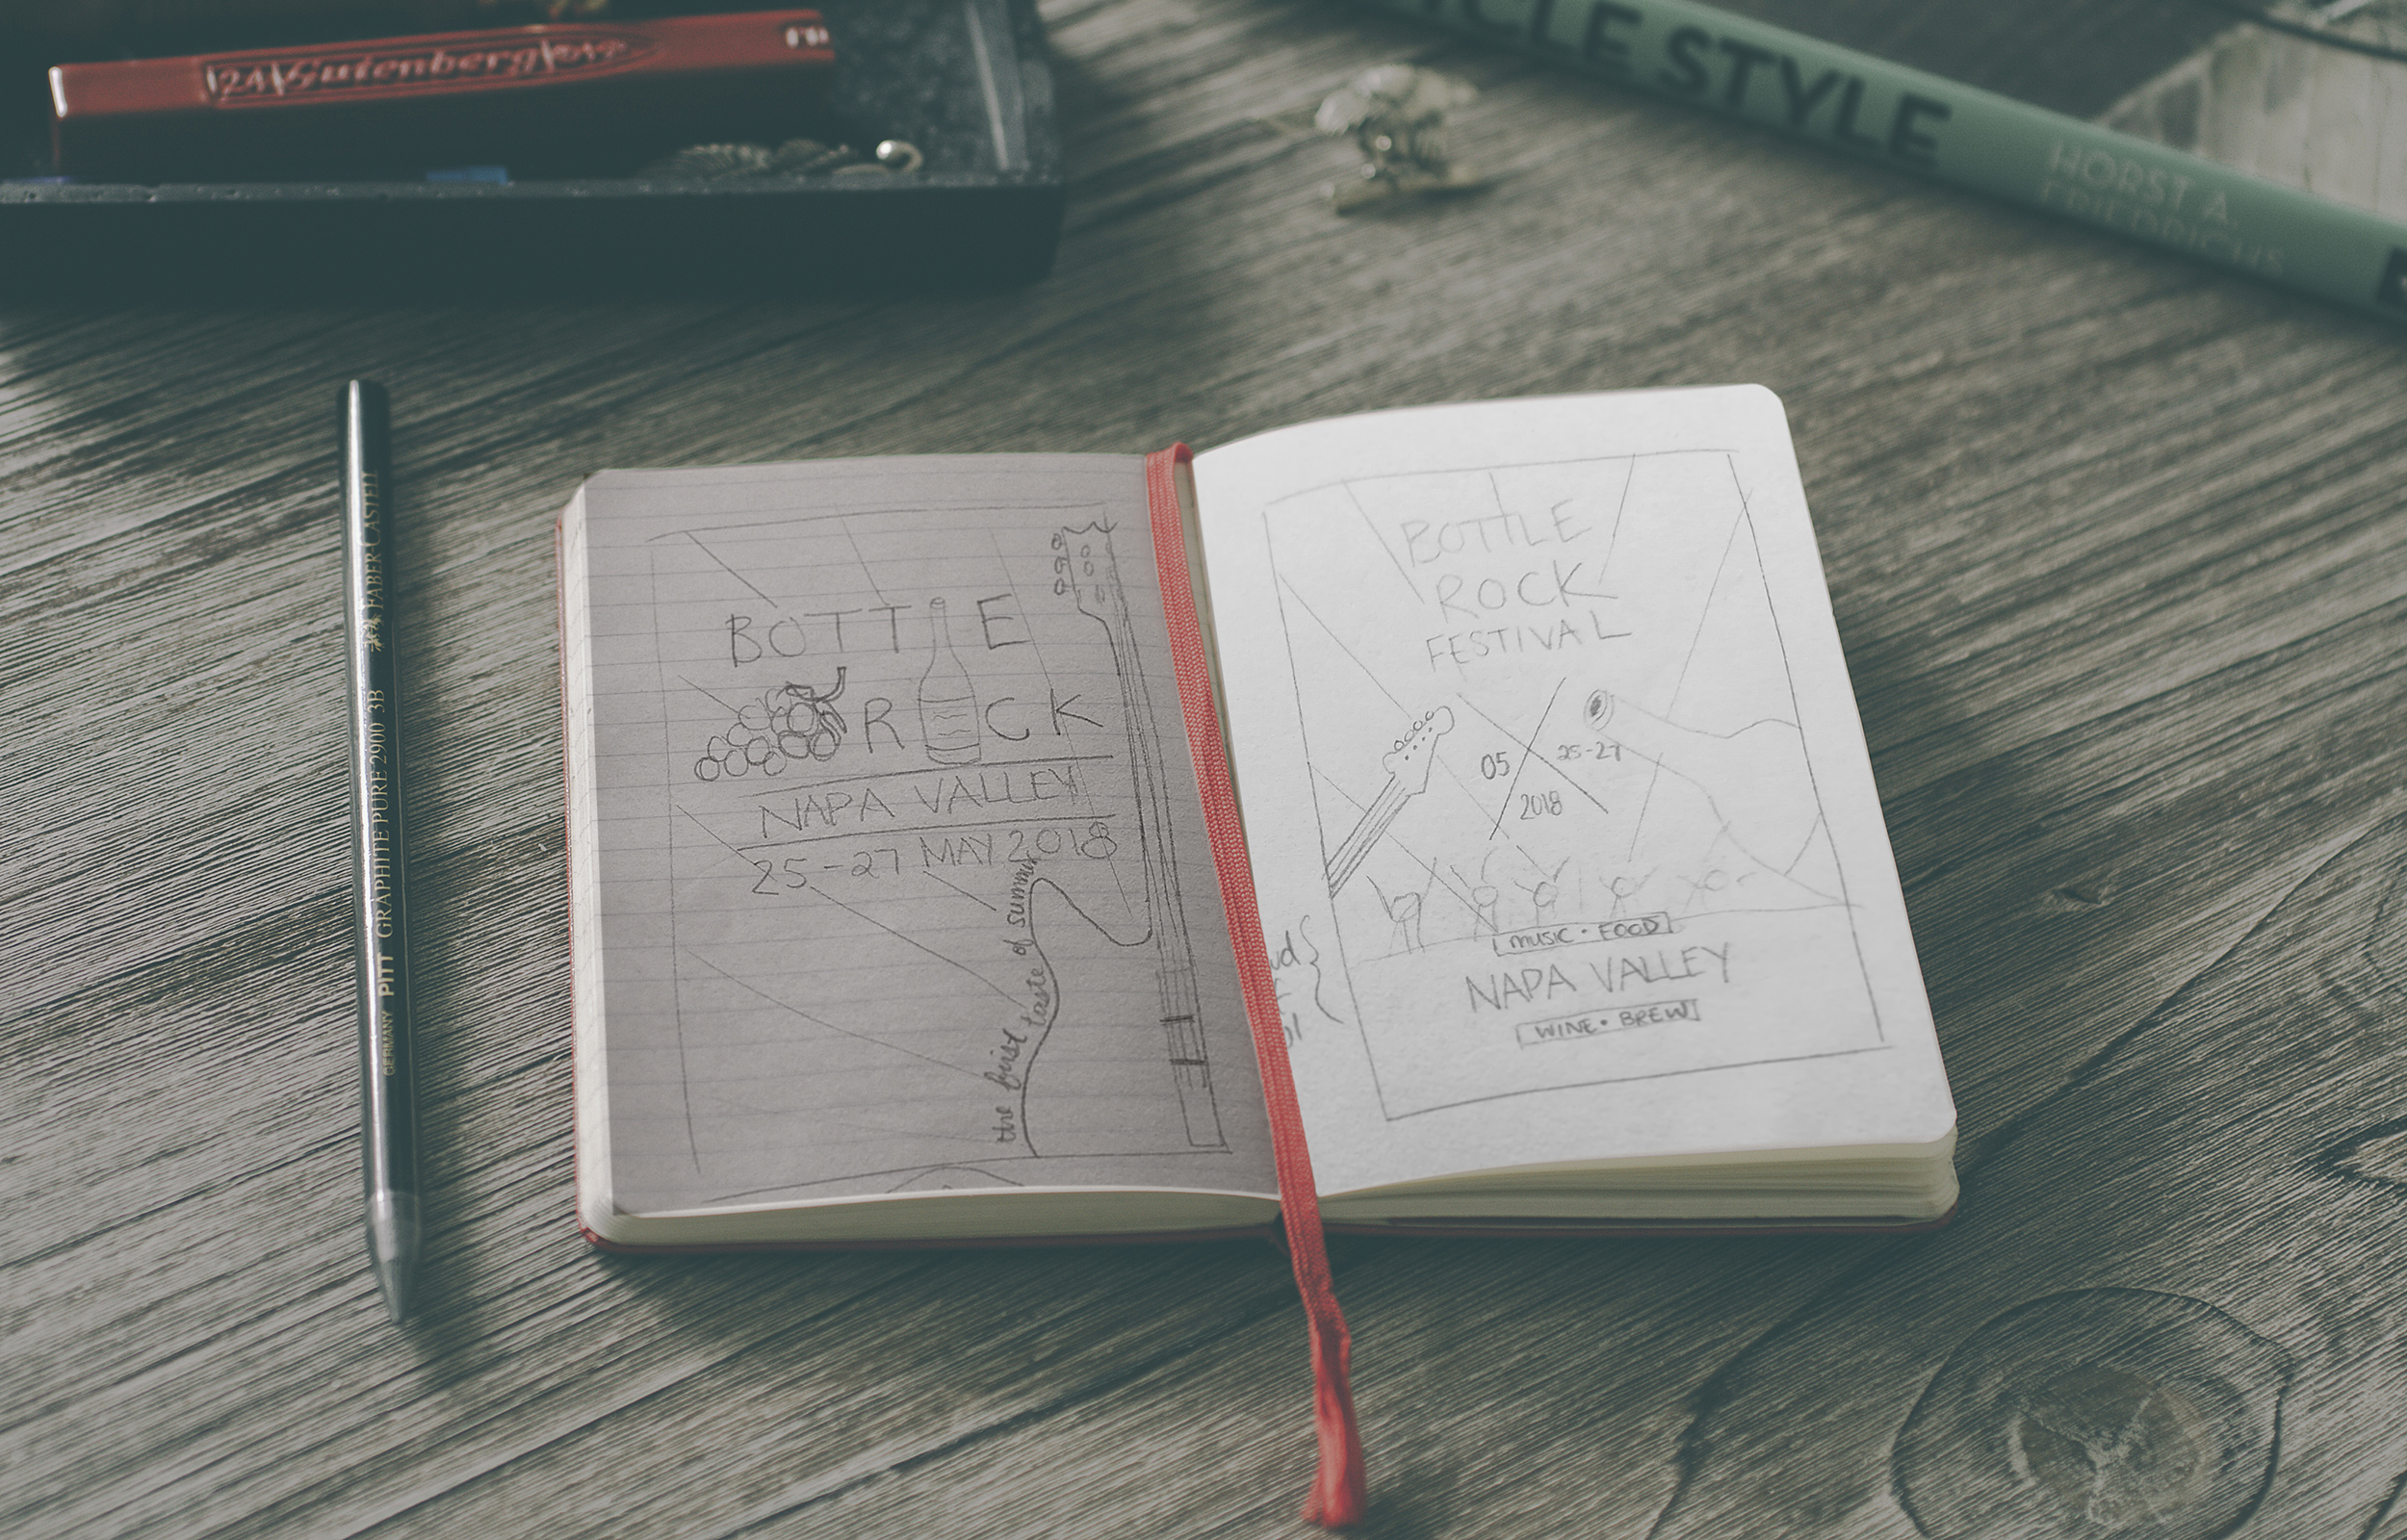 Gutenberg
CLE STYLE
HORST A
FRIEDRICHS
GERMANY PITT GRAPHITE PURE 2900 3B FABER-CASTELL
BOTTLE
ROCK
NAPA VALLEY
25-27 MAY 2018
the first taste of summer
BOTTLE
ROCK
FESTIVAL
05 25-27
2018
MUSIC • FOOD
NAPA VALLEY
WINE • BREW